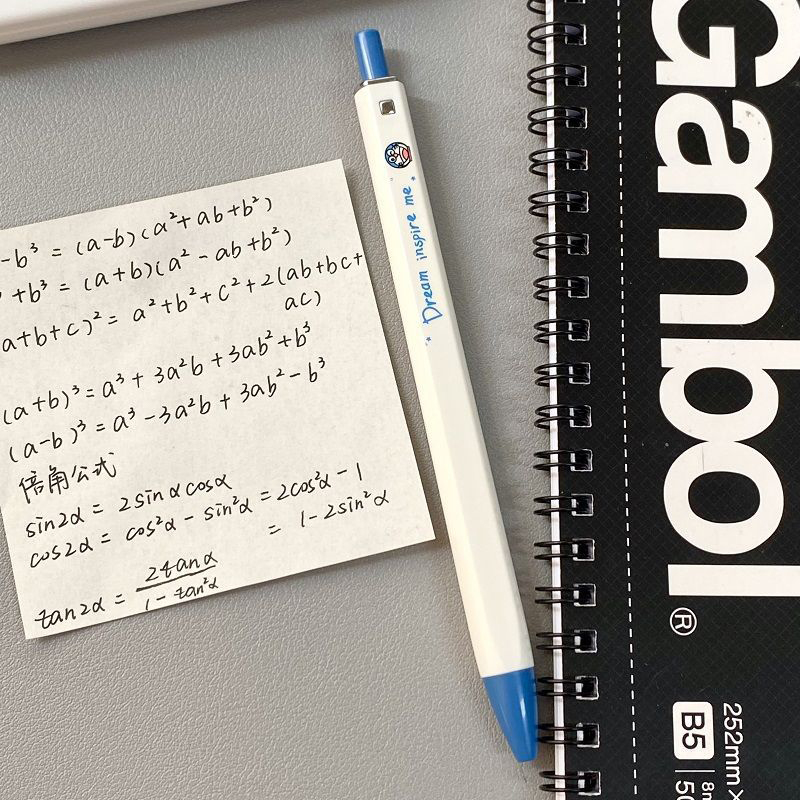 -b³ = (a-b)(a²+ab+b²)
+b³ = (a+b)(a²-ab+b²)
a+b+c)² = a²+b²+c²+2(ab+bc+
ac)
(a+b)³ = a³+3a²b+3ab²+b³
(a-b)³ = a³-3a²b+3ab²-b³
倍角公式
sin2α = 2sinαcosα
cos2α = cos²α - sin²α = 2cos²α - 1
= 1-2sin²α
tan2α = 2tanα / 1-tan²α
Dream inspire me
Gambol®
B5
252mm×
8m
50